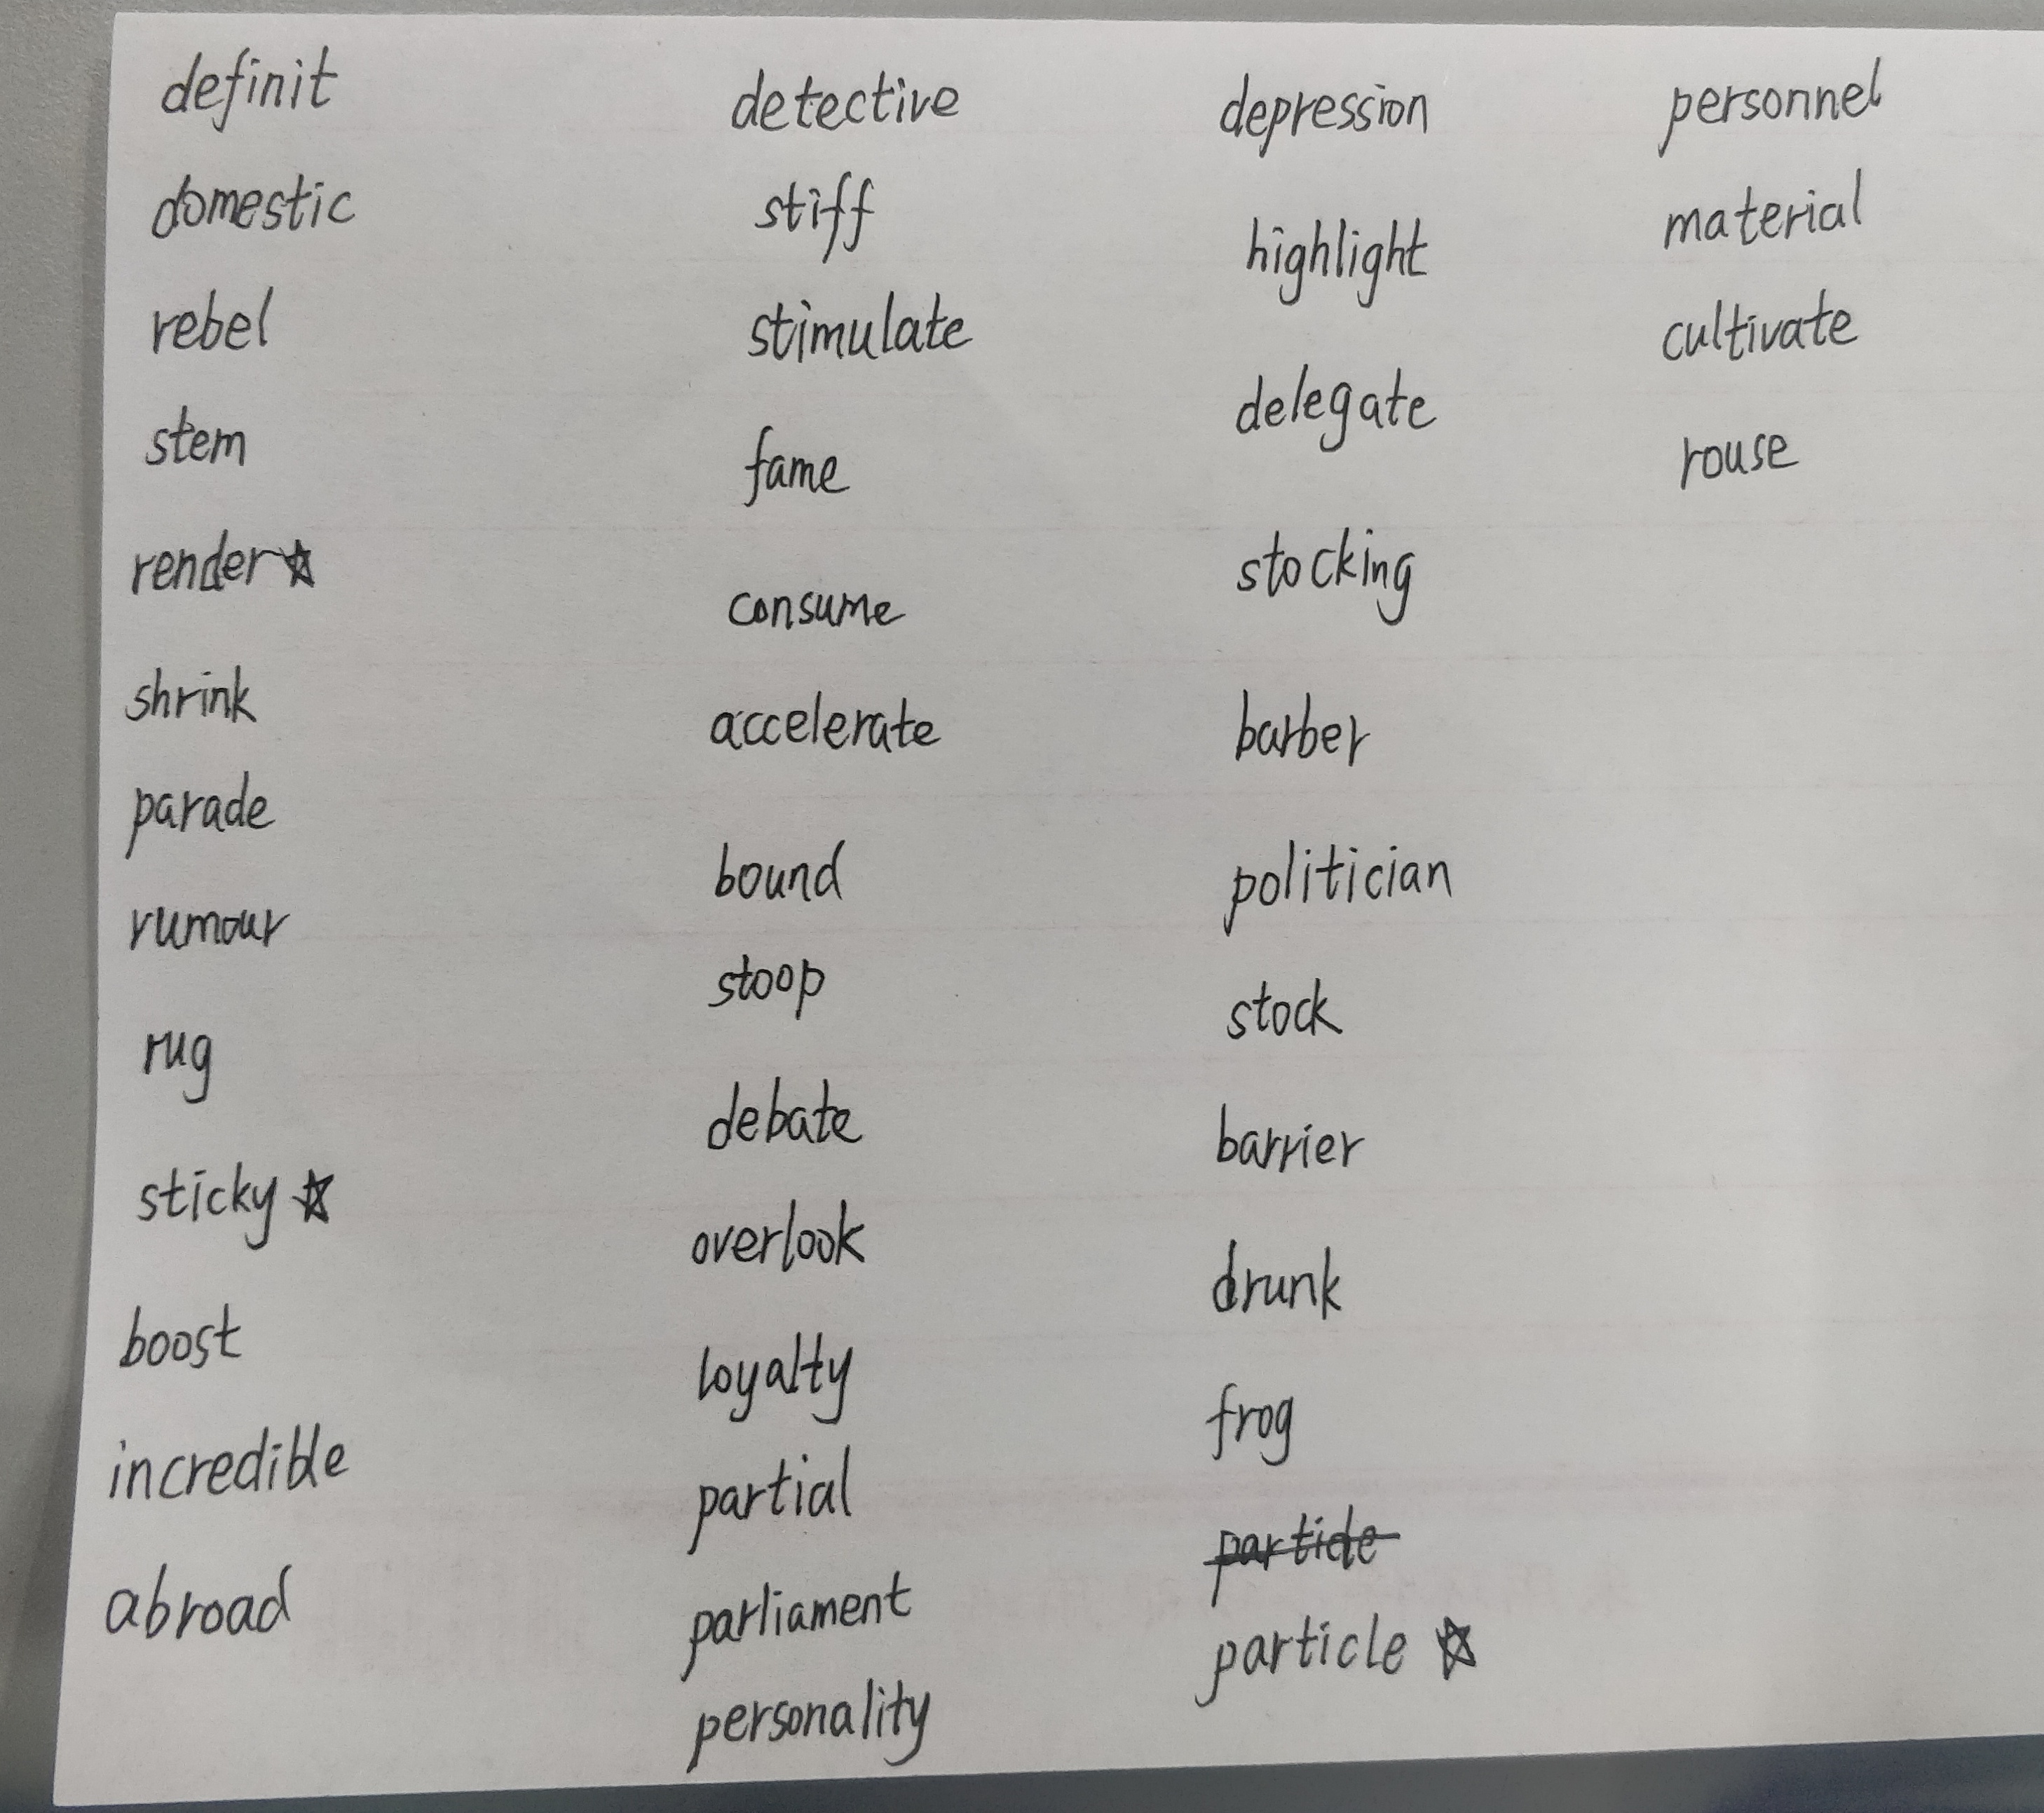 definit
domestic
rebel
stem
render☆
shrink
parade
rumour
rug
sticky ☆
boost
incredible
abroad
detective
stiff
stimulate
fame
consume
accelerate
bound
stoop
debate
overlook
loyalty
partial
parliament
personality
depression
highlight
delegate
stocking
barber
politician
stock
barrier
drunk
frog
particle
particle ☆
personnel
material
cultivate
rouse